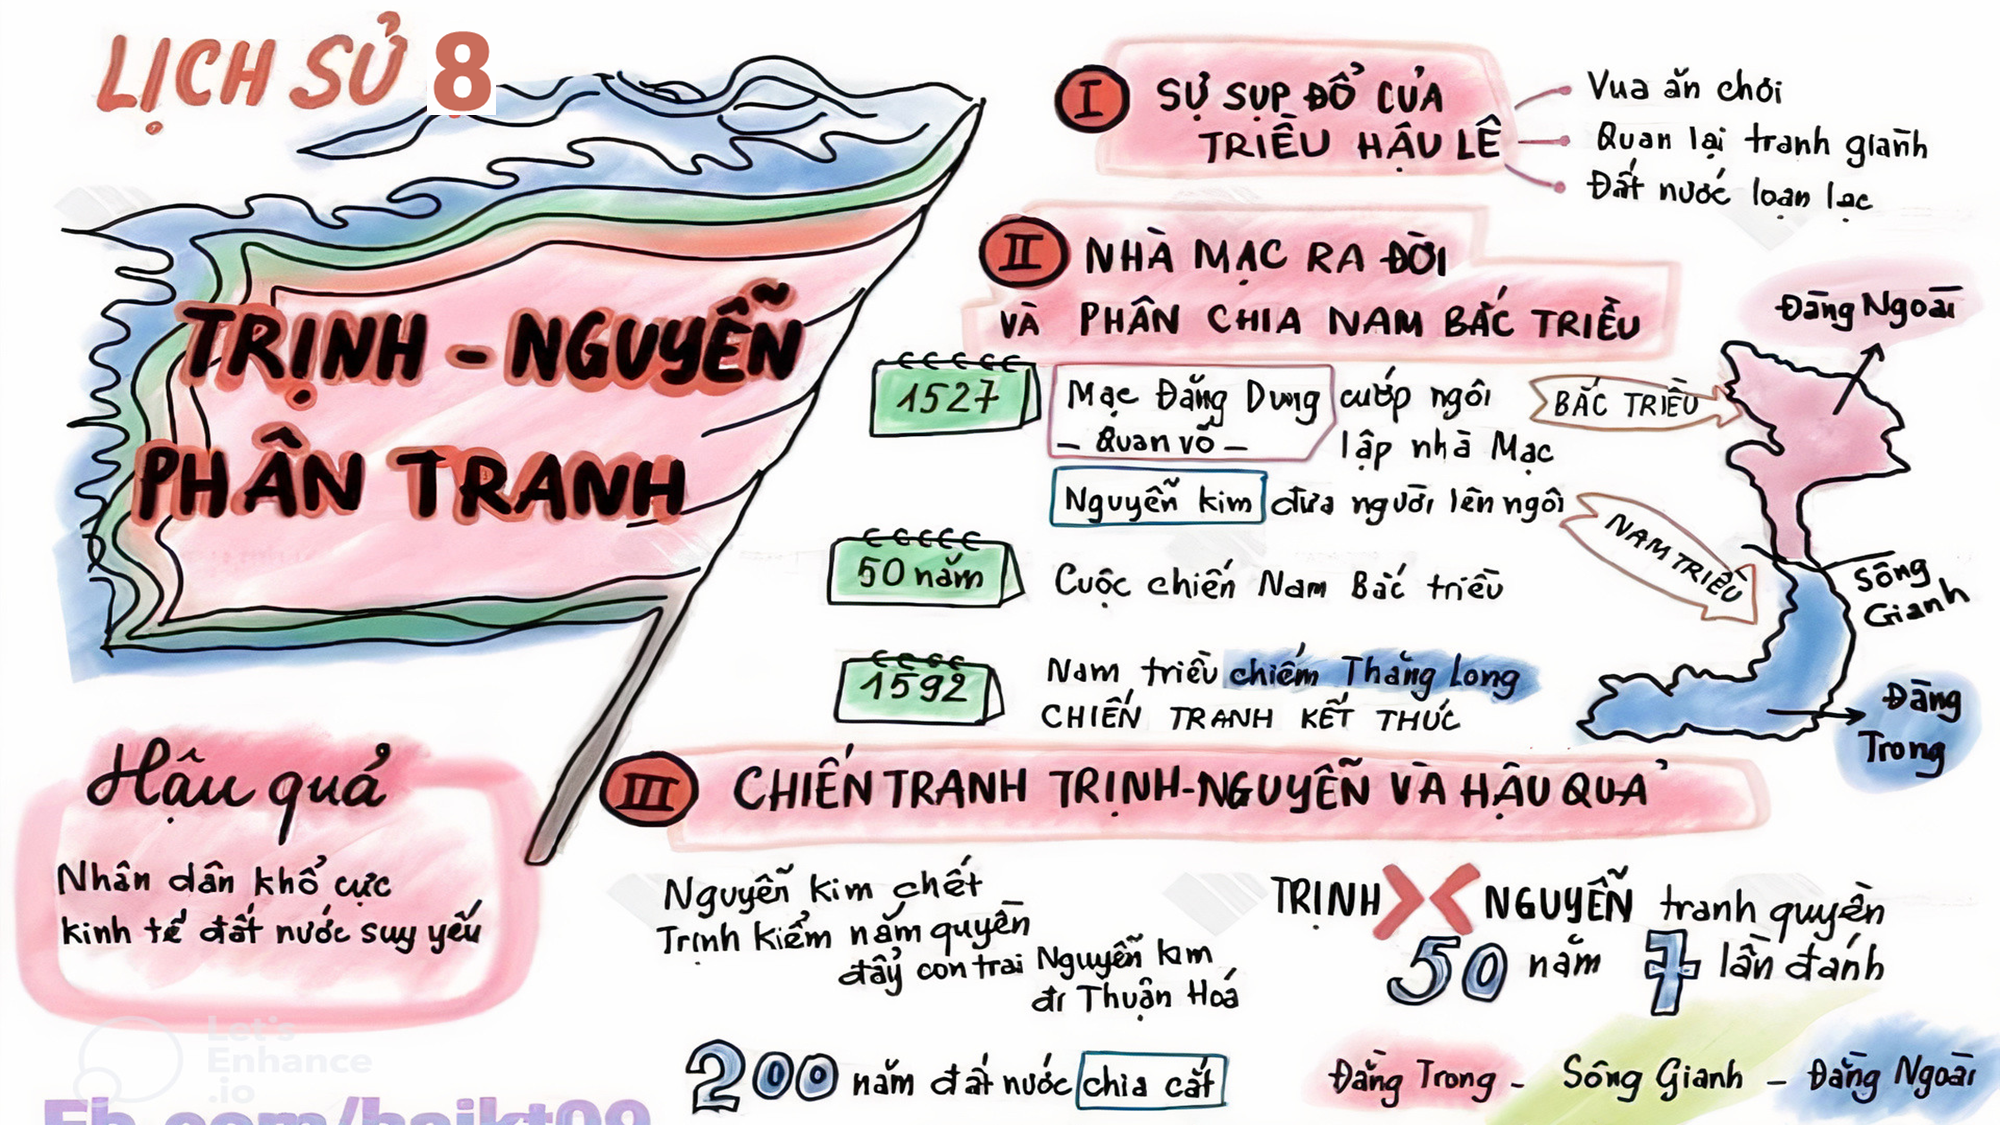 LỊCH SỬ 8
TRỊNH - NGUYỄN
PHÂN TRANH
I SỰ SỤP ĐỔ CỦA
TRIỀU HẬU LÊ
Vua ăn chơi
Quan lại tranh giành
Đất nước loạn lạc
II NHÀ MẠC RA ĐỜI
VÀ PHÂN CHIA NAM BẮC TRIỀU
1527
Mạc Đăng Dung cướp ngôi
- Quan võ - lập nhà Mạc
Nguyễn kim đưa người lên ngôi
50 năm
Cuộc chiến Nam Bắc triều
1592
Nam triều chiếm Thăng Long
CHIẾN TRANH KẾT THÚC
Đàng Ngoài
BẮC TRIỀU
NAM TRIỀU
Sông
Gianh
Đàng
Trong
III CHIẾN TRANH TRỊNH-NGUYỄN VÀ HẬU QUẢ
Nguyễn kim chết
Trịnh kiểm nắm quyền
đẩy con trai Nguyễn kim
đi Thuận Hoá
TRỊNH >< NGUYỄN tranh quyền
50 năm 7 lần đánh
200 năm đất nước chia cắt
Đàng Trong - Sông Gianh - Đàng Ngoài
Hậu quả
Nhân dân khổ cực
kinh tế đất nước suy yếu
Let's
Enhance
.io